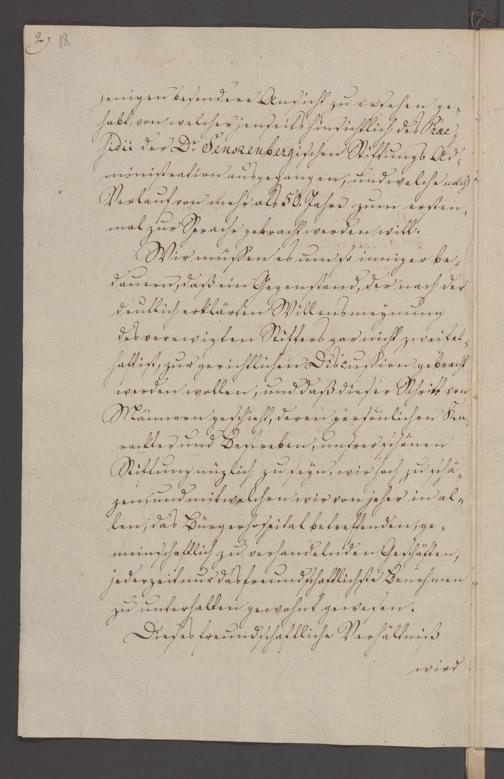 2) 18
jenigen besondere Ansicht zu ersehen ge-
habt, von welcher jenseits hinsichtlich des Prae-
sidii der Dr. Senckenbergischen Stiftungs Ad-
ministration ausgegangen, und welche nach
Verlauf von mehr als 50. Jahre zum ersten-
mal zur Sprache gebracht werden will.
Wir müssen es um so inniger be-
dauern, daß ein Gegenstand, der nach der
deutlich erklärten Willensmeynung
des verewigten Stifters gar nicht zweifel-
haft ist, zur gerichtlichen Discussion gebracht
werden wollen, und daß dieser Schritt von
Männern geschieht, deren persönlichen Ka-
rackter und Bestreben, unsrer schönen
Stiftung nüzlich zu seyn, wir hoch zu schä-
zen, und mit welchen wir von jeher in al-
len, das Bürgerhospital betreffenden, ge-
meinschaftlich zu verhandelnden Geschäften,
jederzeit nur das freundschaftlichste Benehmen
zu unterhalten gewohnt gewesen.
Dieses freundschaftliche Verhältniß
wird